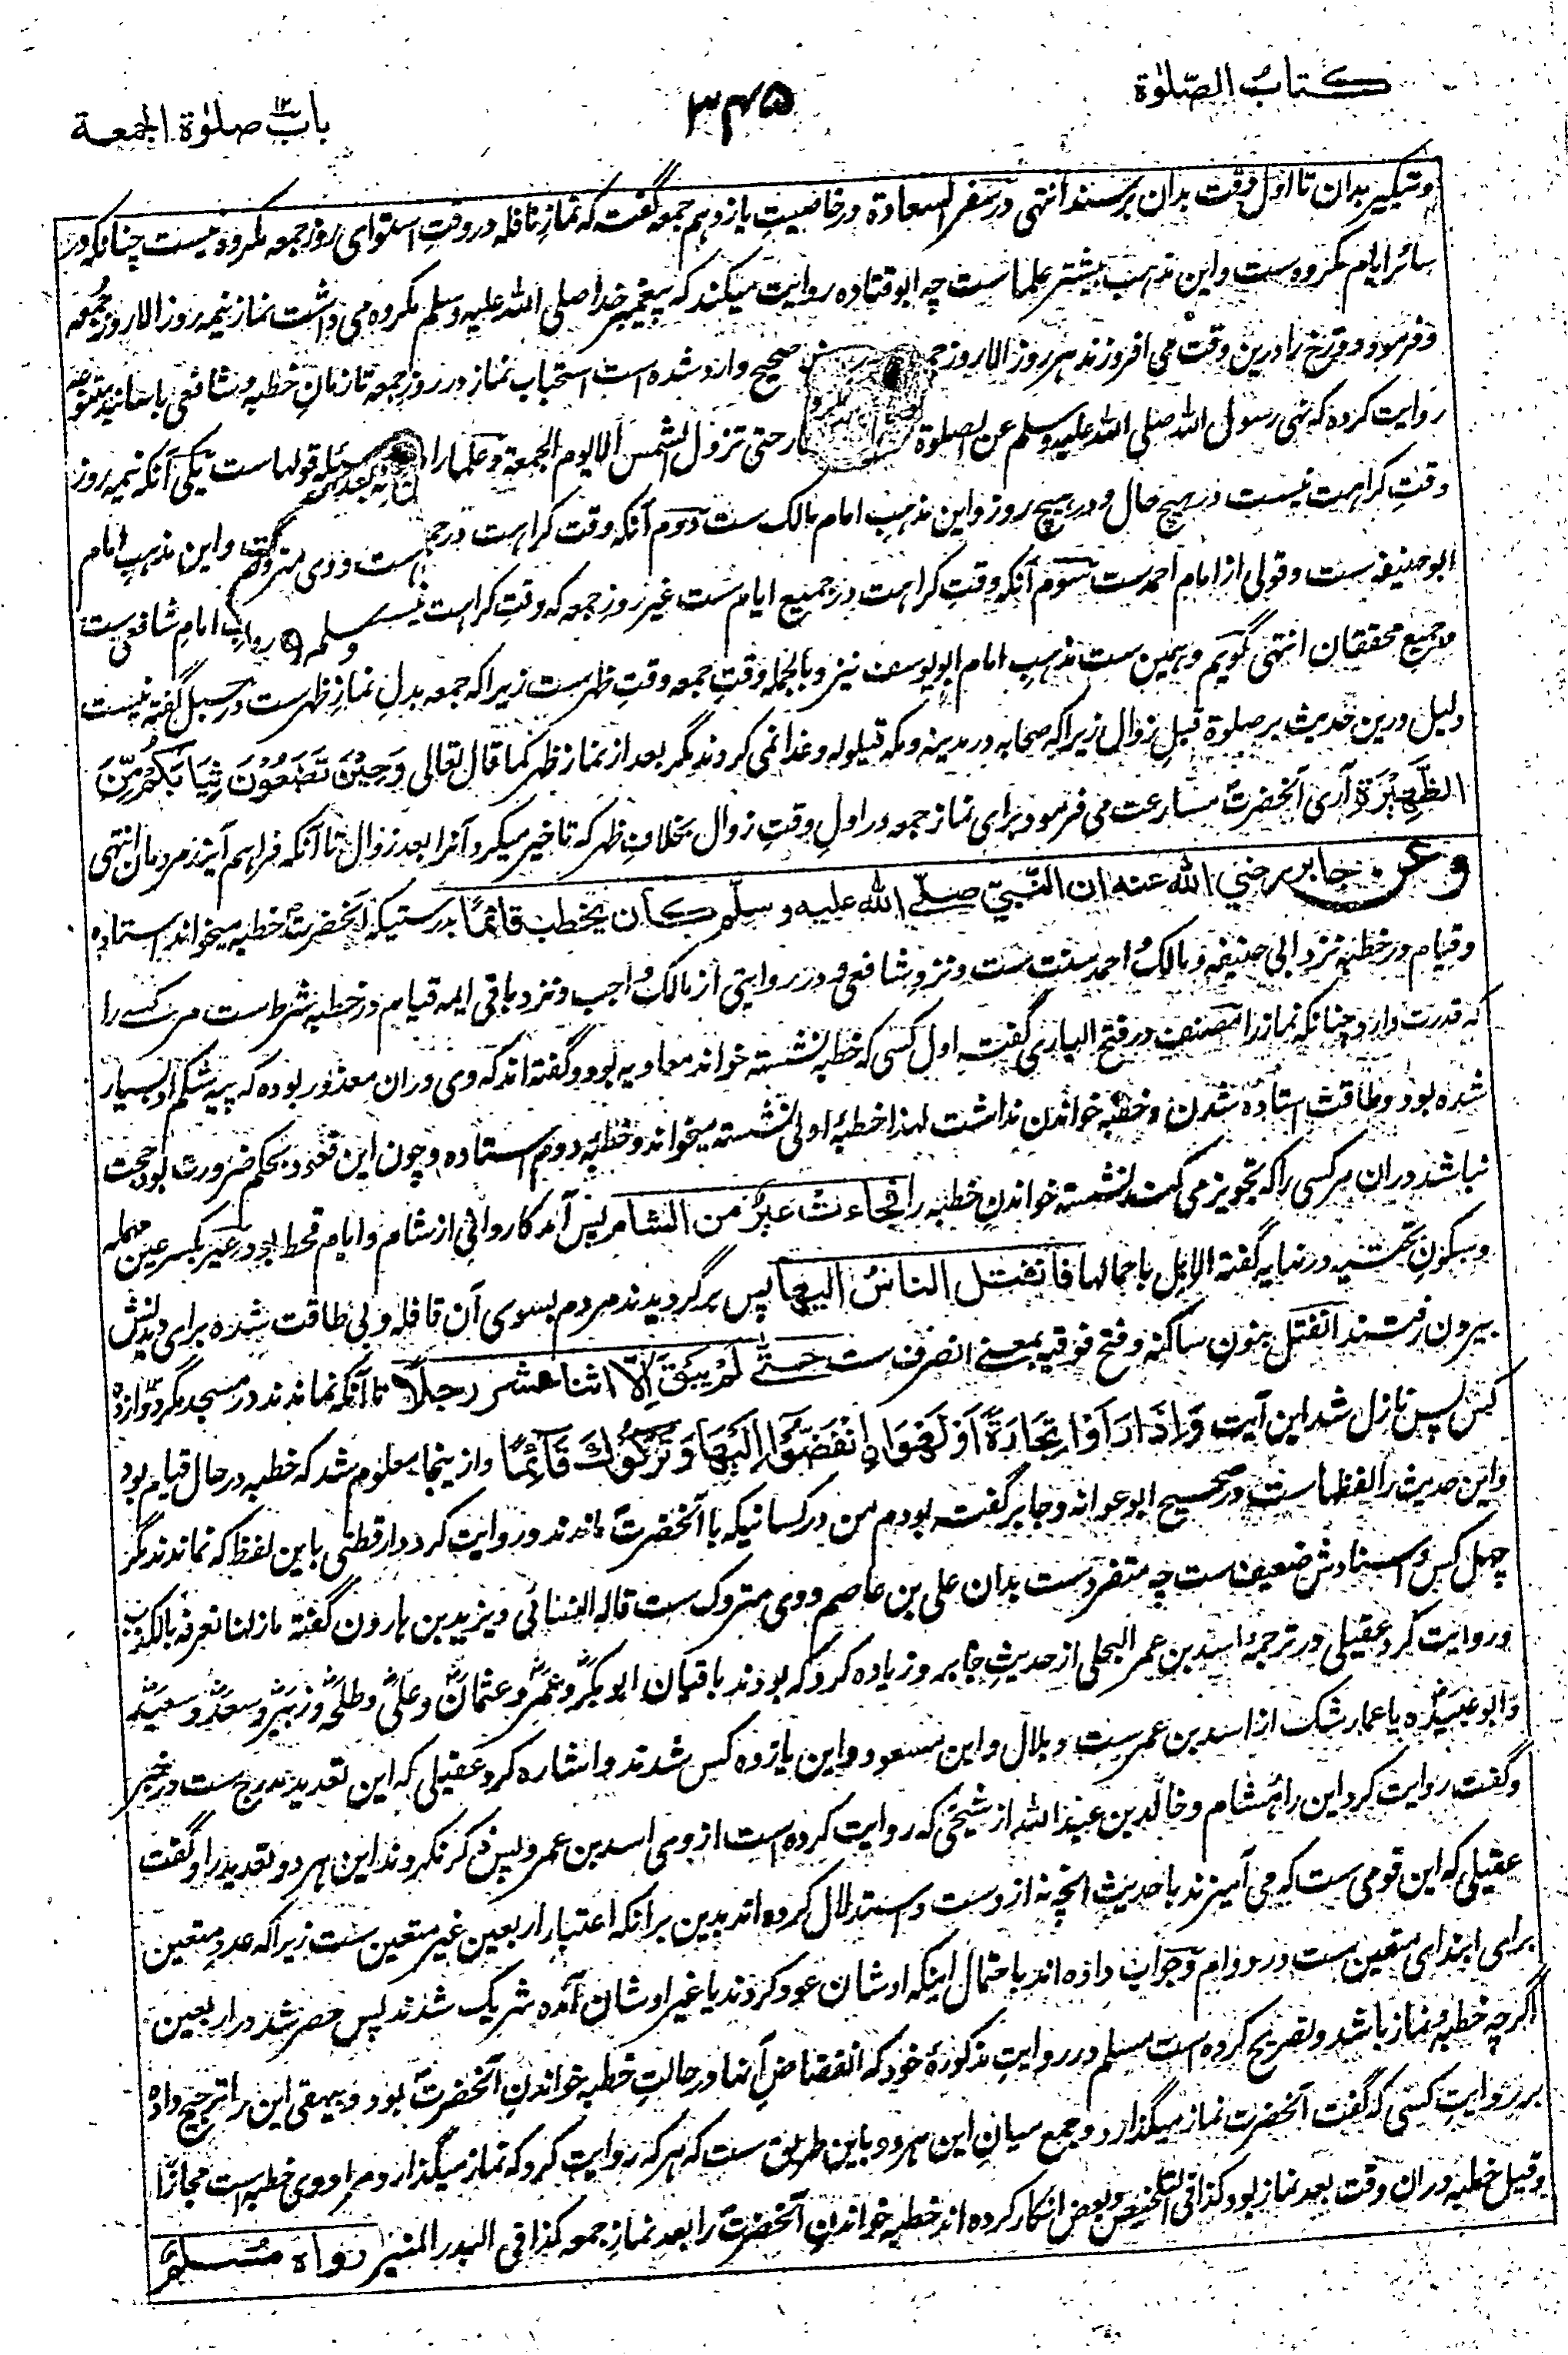 كتاب الصّلوٰة
۳۴۵
باب صلوٰة الجمعة
وتبكير بدان تا اول وقت بدان برسند انتهی در سفر السعادة در خاصیت یازدهم جمعه گفت که نماز نافله در وقت استوای روز جمعه مکروه نیست چنانکه در
سائر ایام مکروه ست و این مذهب بیشتر علماست چه ابو قتاده روایت میکند که پیغمبر خدا صلی الله علیه وسلم مکروه می داشت نماز نیمه روز الا روز جمعه
و فرمود دوزخ را درین وقت می افروزند هر روز الا روز صحیح وارد شده است استحباب نماز در روز جمعه تا زمان خطبه و شافعی باسانید متنوعه
روایت کرده که نهی رسول الله صلی الله علیه وسلم عن الصلوة حتی تزول الشمس الا یوم الجمعة و علما را قولهاست یکی آنکه نیمه روز
وقت کراهت نیست در هیچ حال و در هیچ روز و این مذهب امام مالک ست دوم آنکه وقت کراهت در و این مذهب امام
ابو حنیفه ست و قولی از امام احمد ست سوم آنکه وقت کراهت در جمیع ایام ست غیر روز جمعه که وقت کراهت امام شافعی ست
و جمیع محققان انتهی گویم و همین ست مذهب امام ابو یوسف نیز و بالجمله وقت جمعه وقت ظهرست زیرا که جمعه بدل نماز ظهرست در سبل گفته نیست
دلیل درین حدیث بر صلوة قبل زوال زیرا که صحابه در مدینه و مکه قیلوله و غدا نمی کردند مگر بعد از نماز ظهر کما قال تعالی وَحِيْنَ تَضَعُوْنَ ثِيَابَكُمْ مِّنَ
الظَّهِيْرَةِ آری آنحضرت مسارعت می فرمود برای نماز جمعه در اول وقت زوال بخلاف ظهر که تاخیر میکرد آنرا بعد زوال تا آنکه فراهم آیند مردمان انتهی
وعن جابر رضي الله عنه ان النّبيّ صلّے الله عليه وسلّم كان يخطب قائمًا بدرستیکه آنحضرت خطبه میخواند استاده
و قیام در خطبه نزد ابی حنیفه و مالک و احمد سنت ست و نزد شافعی و در روایتی از مالک واجب و نزد باقی ایمه قیام در خطبه شرط ست مر کسے را
که قدرت دارد چنانکه نماز را مصنف در فتح الباری گفت اول کسی که خطبه نشسته خواند معاویه بود و گفته اند که وی دران معذور بوده که پیه شکم او بسیار
شده بود و طاقت استاده شدن و خطبه خواندن نداشت لهذا خطبهٔ اولی نشسته میخواند و خطبهٔ دوم استاده و چون این قعود بحکم ضرورت بود حجت
نباشد دران مر کسی را که تجویز می کند نشسته خواندن خطبه را فجاءت عيرٌ من الشام پس آمد کاروانی از شام و ایام قحط بود عیر بکسر عین مهمله
و سکون تحتیه در نهایه گفته الابل باحمالها فانفتل الناسُ اليها پس برگردیدند مردم بسوی آن قافله و بی طاقت شده برای دیدنش
بیرون رفتند انفتل بنون ساکنه و فتح فوقیه بمعنے انصرف ست حتّے لم يبق إلّا اثنا عشر رجلًا تا آنکه نماندند در مسجد مگر دوازده
کس پس نازل شد این آیت وَإِذَا رَأَوْا تِجَارَةً أَوْ لَهْوَا ۨانْفَضُّوْا إِلَيْهَا وَتَرَكُوْكَ قَائِمًا و ازینجا معلوم شد که خطبه در حال قیام بود
و این حدیث را لفظهاست در صحیح ابو عوانه و جابر گفت بودم من در کسانیکه با آنحضرت ماندند و روایت کرد دارقطنی باین لفظ که نماندند مگر
چهل کس و اسنادش ضعیف ست چه متفرد ست بدان علی بن عاصم و وی متروک ست قاله النسائی و یزید بن هارون گفته ما زلنا نعرفه بالکذب
و روایت کرد عقیلی در ترجمهٔ اسد بن عمر البجلی از حدیث جابر و زیاده کرد که بودند باقیان ابوبکر و عمر و عثمان و علی و طلحه و زبیر و سعد و سعید
و ابو عبیده یا عمار شک از اسد بن عمر ست و بلال و ابن مسعود و این یازده کس شدند و اشاره کرد عقیلی که این تعدید مدرج ست در خبر
و گفت روایت کرد این را هشام و خالد بن عبد الله از شیخی که روایت کرده است از وی اسد بن عمر و پس ذکر نکردند این هر دو تعدید را و گفت
عقیلی که این قومی ست که می آمیزند با حدیث انچه نه از وست و استدلال کرده اند بدین برانکه اعتبار اربعین غیر متعین ست زیرا که عدد متعین
برای ابتدای متعین ست در دوام و جواب داده اند باحتمال اینکه اوشان عود کردند یا غیر اوشان آمده شریک شدند پس حصر شد در اربعین
اگرچه خطبه و نماز باشد و تصریح کرده ست مسلم در روایت مذکورهٔ خود که انفضاض آنها در حالت خطبه خواندن آنحضرت بود و بیهقی این را ترجیح داده
بر روایت کسی که گفت آنحضرت نماز میگذارد و جمع میان این هر دو باین طریق ست که هر که روایت کرد که نماز میگذارد مراد وی خطبه است مجازًا
و قیل خطبه دران وقت بعد نماز بود کذا فی التلخیص و بعض انکار کرده اند خطبه خواندن آنحضرت را بعد نماز جمعه کذا فی البدر المنیر رواه مسلم